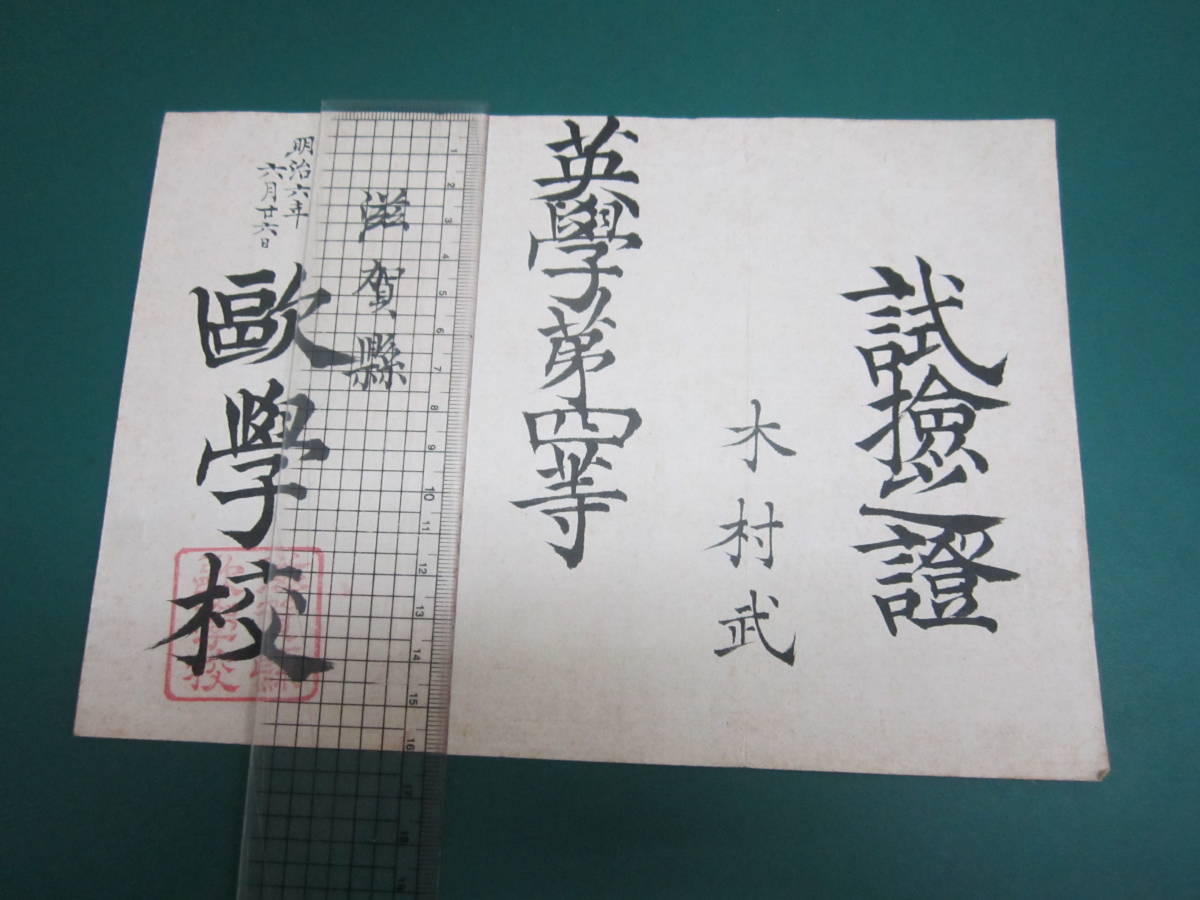 試撿之證
木村武
英學第四等
滋賀縣
歐學校
明治六年
六月廿六日
滋賀縣
歐學校
1
2
3
4
5
6
7
8
9
10
11
12
13
14
15
16
17
18
19